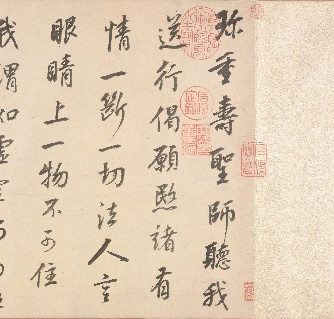 珎重壽聖師聽我
送行偈願愍諸有
情一斷一切法人言
眼睛上一物不可住
我謂如虛空